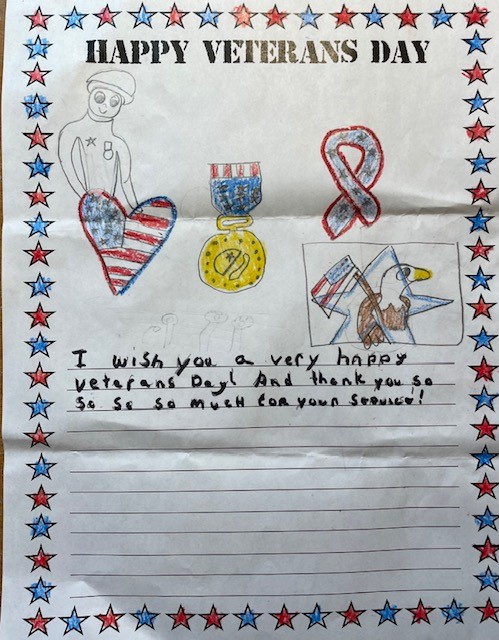 HAPPY VETERANS DAY
I wish you a very happy
veterans Day! And thank you so
So So so much for your service!